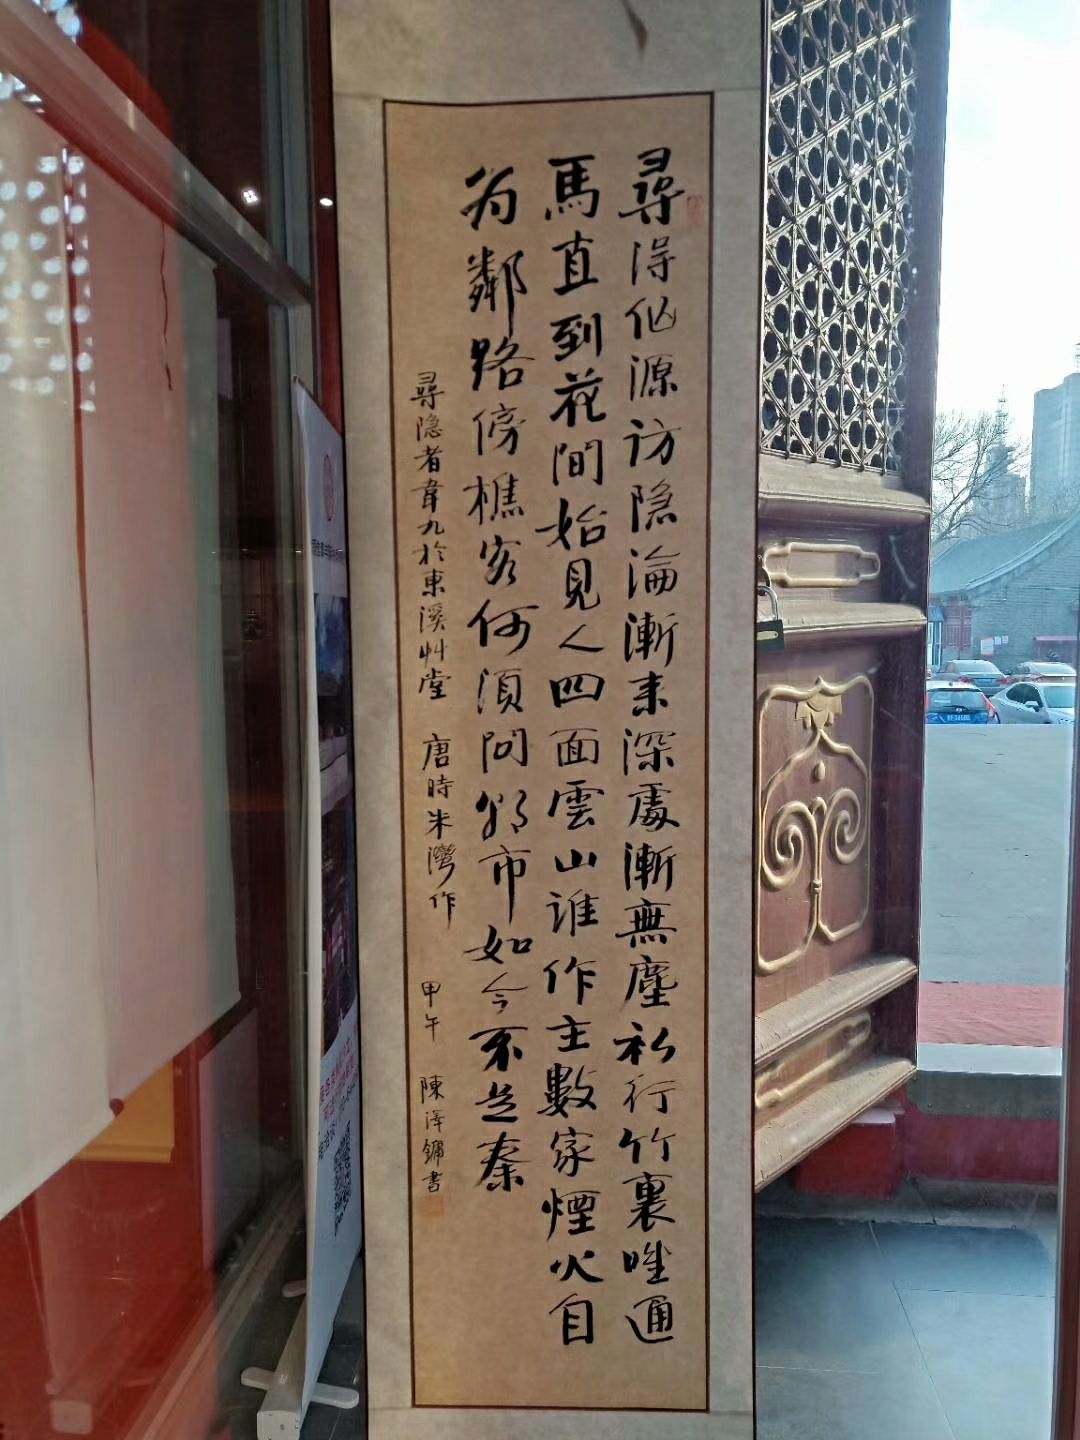 尋得仙源访隐淪漸来深處漸無塵初行竹裏唯通
馬直到花间始見人四面雲山谁作主數家煙火自
为鄰路傍樵客何須问朝市如今不是秦
尋隐者韋九於東溪艸堂 唐時朱灣作 甲午 陳泽鏞書